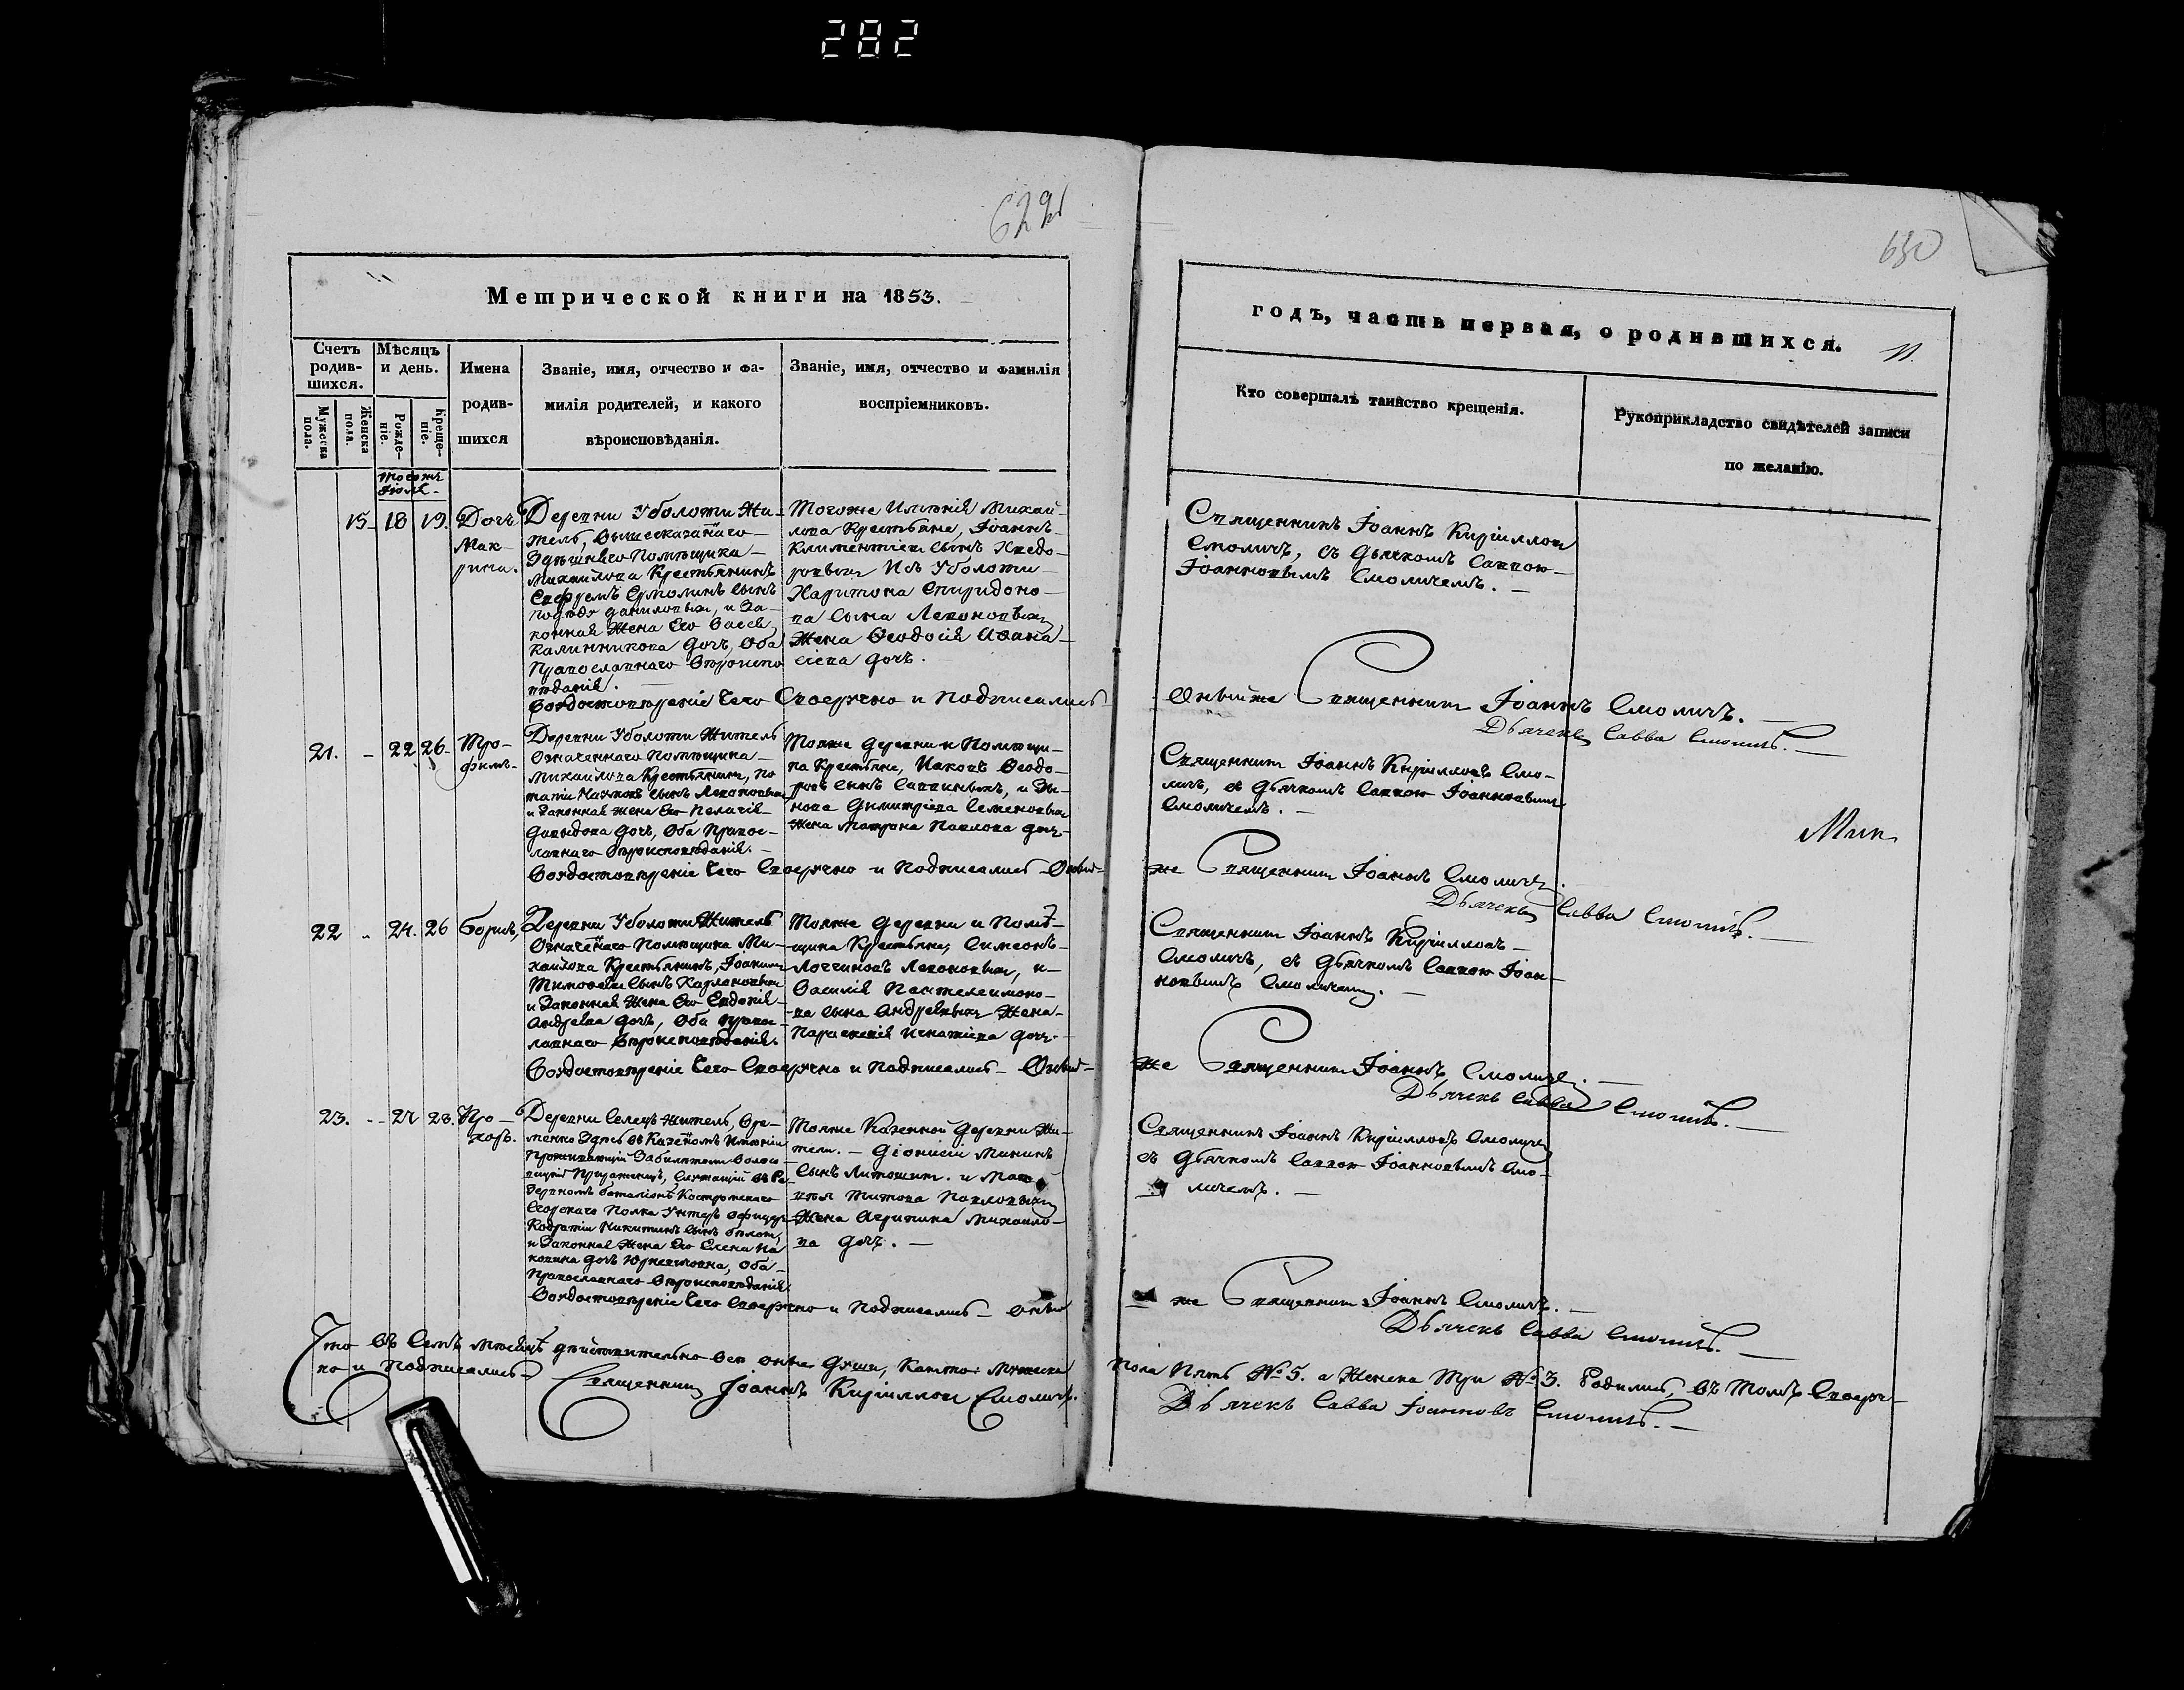 282
629
630
Метрической книги на 1853.
годъ, часть первая, о родившихся.
11.
Счетъ родив-шихся.
Мужеска пола.
Женска пола.
Мѣсяцъ и день.
Рожде-ніе.
Креще-ніе.
Имена
родив-
шихся
Званіе, имя, отчество и фа-
милія родителей, и какого
вѣроисповѣданія.
Званіе, имя, отчество и фамилія
воспріемниковъ.
Кто совершалъ таинство крещенія.
Рукоприкладство свидѣтелей записи
по желанію.
тогожъ
Іюля
15 18 19. Дочь
Мак-
рина.
Деревни Уболоти Жи-
тель, Вышесказаннаго
Здѣшняго Помѣщика
Михайлова Крестьянинъ
Ермолинъ сынъ
и За-
конная Жена Его
Калинникова дочь, Оба
Православнаго Вѣроиспо
вѣданія.
Тогоже Имѣнія Михай-
лова Крестьяне, Іоаннъ
Климентіевъ сынъ Хведо-
ровъ Изъ Уболоти
Харитона Спиридоно-
ва сына
Жена Ѳеодосія Аѳана-
сіева дочь.
Священникъ Іоаннъ Кирилловъ
Смоличъ, съ дьячкомъ Саввою
Іоанновымъ Смоличемъ.
Во удостовѣреніе Чего Своеручно и Подписались
Оныйже Священникъ Іоаннъ Смоличъ.
Дьячекъ Савва Смоличъ.
21. - 22 26 Тро-
фимъ
Деревни Уболоти Житель
Означеннаго Помѣщика
Михайлова Крестьянинъ,
сынъ
и Законная жена Его Пелагія
Давыдова дочь, Оба Право-
славнаго Вѣроисповѣданія.
Тояже деревни и Помѣщи-
ка Крестьяне, Иаковъ Ѳеодо-
ровъ сынъ Саввинымъ, и Зи-
нова Димитріева
Жена Матрона Павлова дочь
Священникъ Іоаннъ Кирилловъ Смо-
личъ, съ дьячкомъ Саввою Іоанновымъ
Смоличемъ.
Мик
Во удостовѣреніе Чего Своеручно и Подписались Оный-
же Священникъ Іоаннъ Смоличъ.
Дьячекъ Савва Смоличъ.
22 „ 24. 26 Борисъ,
Деревни Уболоти Житель
Означеннаго Помѣщика Ми-
хайлова Крестьянинъ, Іоакимъ
Тимоѳеевъ сынъ
и Законная жена Его Евдокія
Андреева дочь, Оба Право-
славнаго Вѣроисповѣданія.
Тояже деревни и Помѣ-
щика Крестьяне, Симеонъ
и
Василія Пантелеимоно-
ва сына Жена
Параскевія Игнатіева дочь
Священникъ Іоаннъ Кирилловъ
Смоличъ, съ дьячкомъ Саввою Іоан-
новымъ Смоличемъ.
Во удостовѣреніе Чего Своеручно и Подписались Оный-
же Священникъ Іоаннъ Смоличъ.
Дьячекъ Савва Смоличъ.
23. - 27 28. Про-
хоръ.
Деревни Селецъ Житель, Вре-
менно Здѣсь въ Казенномъ Имѣніи
Проживающій
Полка Унтеръ Офицеръ
Никитинъ сынъ
и Законная жена Его Елена
дочь Оба
Православнаго Вѣроисповѣданія
Тояже Казенной деревни Жи-
тели. Діонисій Мининъ
сынъ и
Титова
Жена Агрипина Михаило-
ва дочь.
Священникъ Іоаннъ Кирилловъ Смоличъ
съ дьячкомъ Саввою Іоанновымъ Смо-
личемъ.
Во удостовѣреніе Чего Своеручно и Подписались оный
же Священникъ Іоаннъ Смоличъ.
Дьячекъ Савва Смоличъ.
Что въ Семъ мѣсяцѣ дѣйствительно Всѣ оные Души, Какъто: Мужеска пола Пять № 5. а Женска Три № 3. Родились, въ томъ Своеруч-
но и Подписались Священникъ Іоаннъ Кирилловъ Смоличъ.
Дьячекъ Савва Іоанновъ Смоличъ.